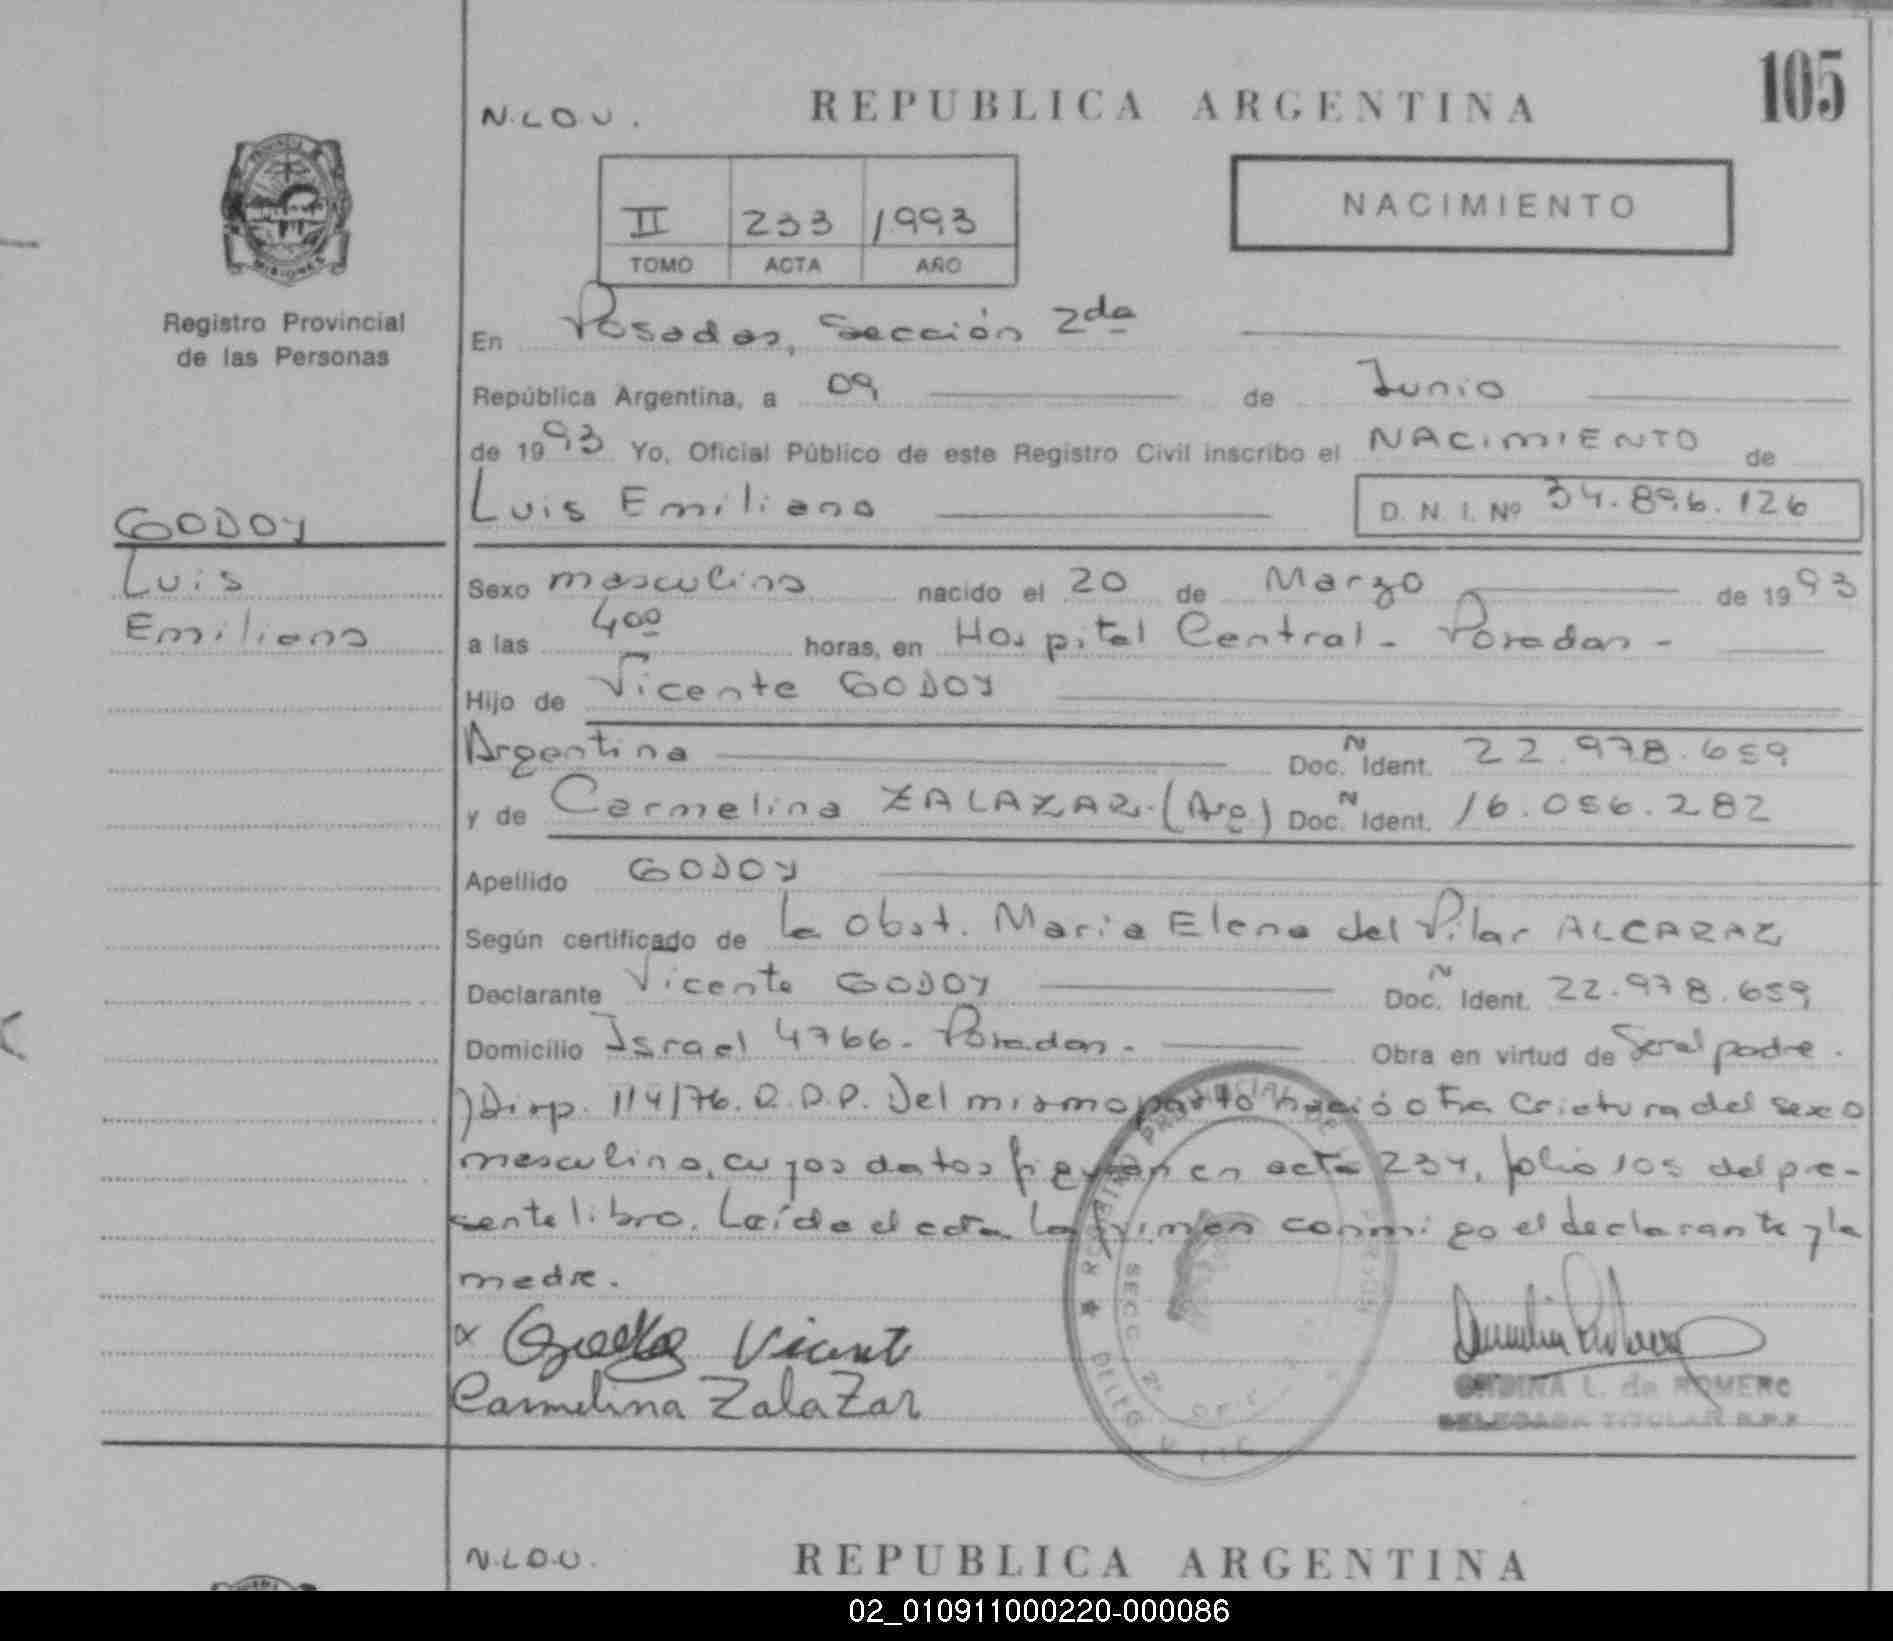 105
N.L.O.U.
REPUBLICA ARGENTINA
II 233 1993
TOMO ACTA AÑO
NACIMIENTO
MISIONES
Registro Provincial
de las Personas
En Posadas, Sección 2da
República Argentina, a 09 de Junio
de 1993 Yo, Oficial Público de este Registro Civil inscribo el NACIMIENTO de
Luis Emiliano D. N. I. Nº 34.896.126
GODOY
Luis
Emiliano
Sexo masculino nacido el 20 de Marzo de 1993
a las 4oo horas, en Hospital Central - Posadas -
Hijo de Vicente GODOY
Argentina Doc. Ñ Ident. 22.978.659
y de Carmelina ZALAZAR. (Arg) Doc. Ñ Ident. 16.056.282
Apellido GODOY
Según certificado de la Obst. Maria Elena del Pilar ALCARAZ
Declarante Vicente GODOY Doc. Ñ Ident. 22.978.659
Domicilio Israel 4766. Posadas. Obra en virtud de Ser el padre.
) Disp. 114/76. R.P.P. Del mismo parto nació otra criatura del sexo
masculino, cuyos datos figuran en acta 234, folio 105 del pre-
sente libro. Leída el acta la firman conmigo el declarante y la
madre.
Godoy Vicente
Carmelina ZalaZar
REGISTRO PROVINCIAL DE
SECC 2ª
ONDINA L. de ROMERO
DELEGADA TITULAR R.P.P
N.L.O.U.
REPUBLICA ARGENTINA
02_010911000220-000086